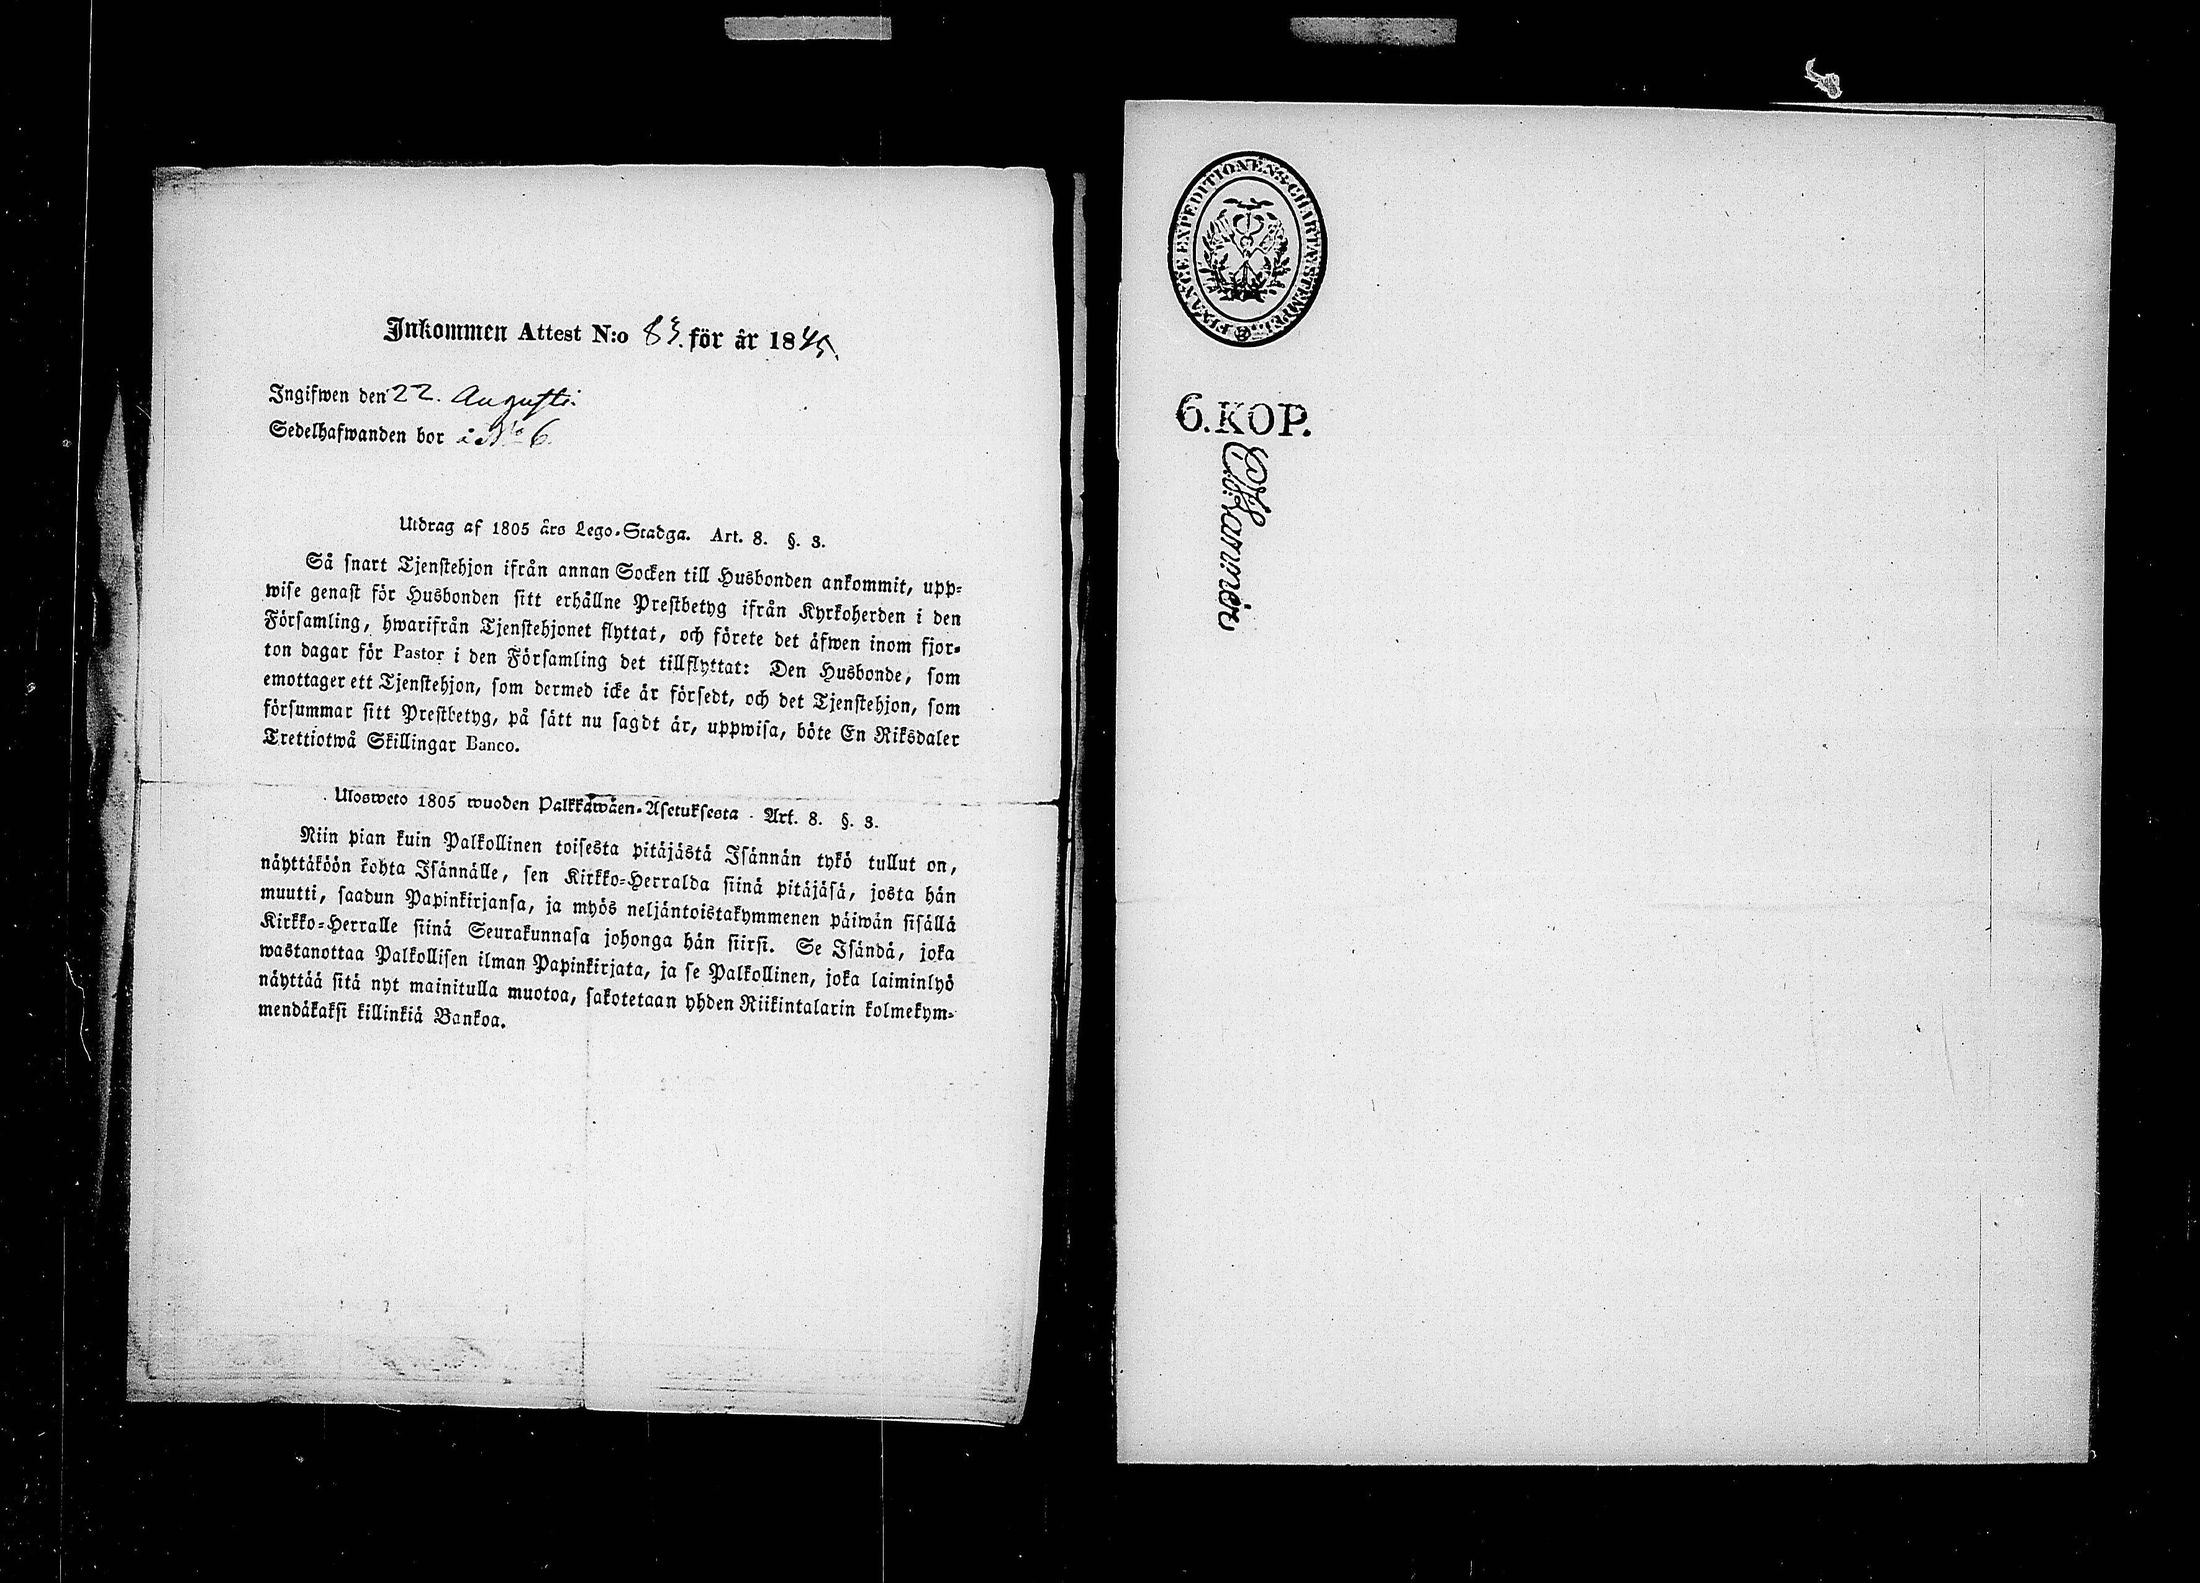 Inkommen Attest N:o 83. för år 1845.
Ingifwen den 22. Augusti
Sedelhafwanden bor i No 6
Utdrag af 1805 års Lego-Stadga. Art. 8. §. 3.
Så snart Tjenstehjon ifrån annan Socken till Husbonden ankommit, upp-
wise genast för Husbonden sitt erhållne Prestbetyg ifrån Kyrkoherden i den
Församling, hwarifrån Tjenstehjonet flyttat, och förete det äfwen inom fjor-
ton dagar för Pastor i den Församling det tillflyttat: Den Husbonde, som
emottager ett Tjenstehjon, som dermed icke är försedt, och det Tjenstehjon, som
försummar sitt Prestbetyg, på sätt nu sagdt är, uppwisa, böte En Riksdaler
Trettiotwå Skillingar Banco.
Ulosweto 1805 wuoden Palkkawäen-Asetuksesta. Art. 8. §. 3.
Niin pian kuin Palkollinen toisesta pitäjästä Isännän tykö tullut on,
näyttäköön kohta Isännälle, sen Kirkko-Herralda siinä pitäjäsä, josta hän
muutti, saadun Papinkirjansa, ja myös neljäntoistakymmenen päiwän sisällä
Kirkko-Herralle siinä Seurakunnasa johonga hän siirsi. Se Isändä, joka
wastanottaa Palkollisen ilman Papinkirjata, ja se Palkollinen, joka laiminlyö
näyttää sitä nyt mainitulla muotoa, sakotetaan yhden Riikintalarin kolmekym-
mendäkaksi killinkiä Bankoa.
FINANCE EXPEDITIONENS CHARTÆ STEMPEL
6.KOP.